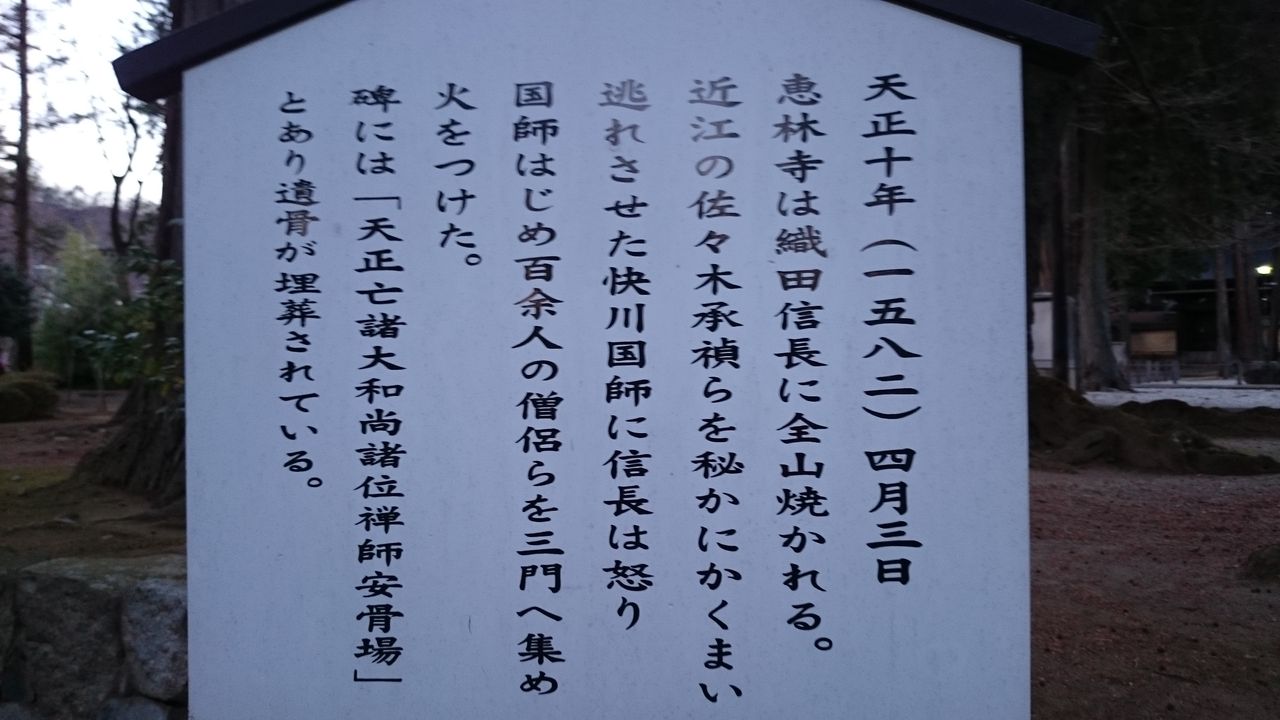 天正十年（一五八二）四月三日
恵林寺は織田信長に全山焼かれる。
近江の佐々木承禎らを秘かにかくまい
逃れさせた快川国師に信長は怒り
国師はじめ百余人の僧侶らを三門へ集め
火をつけた。
碑には「天正亡諸大和尚諸位禅師安骨場」
とあり遺骨が埋葬されている。